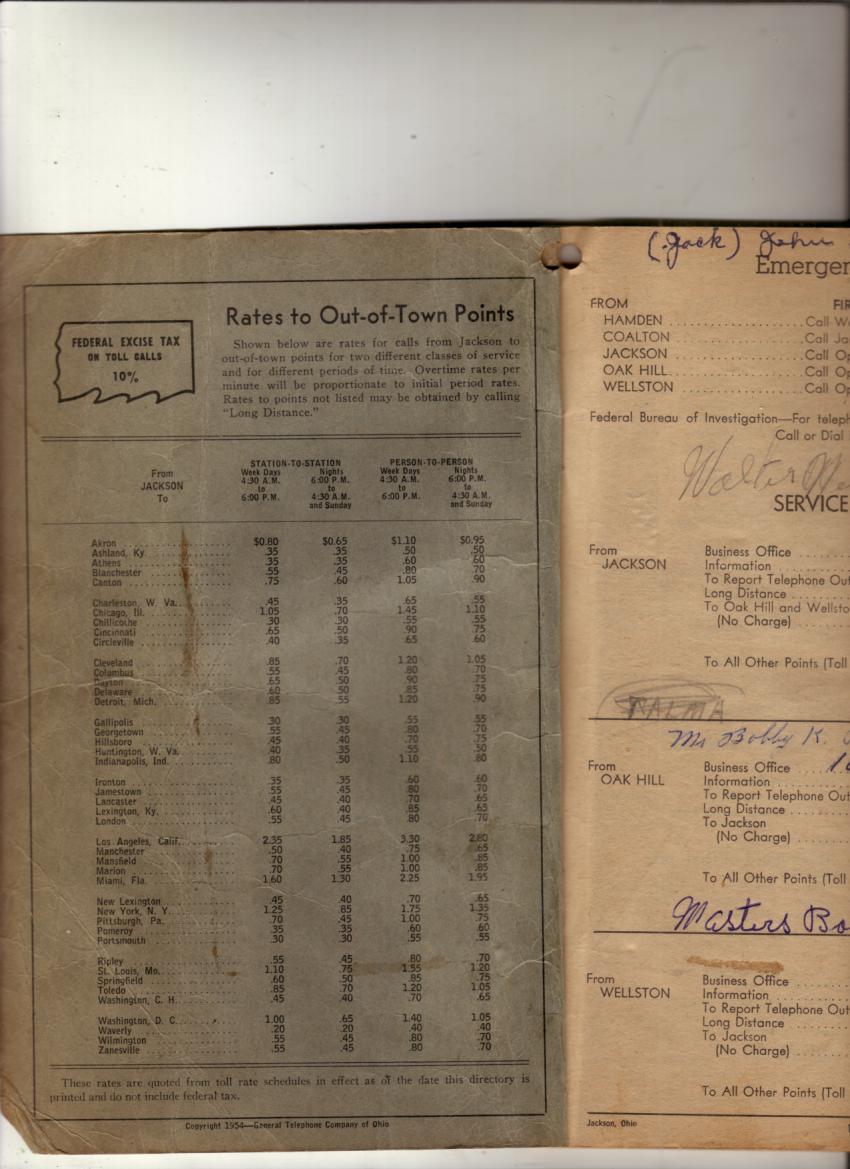 FEDERAL EXCISE TAX
ON TOLL CALLS
10%
Rates to Out-of-Town Points
Shown below are rates for calls from Jackson to
out-of-town points for two different classes of service
and for different periods of time. Overtime rates per
minute will be proportionate to initial period rates.
Rates to points not listed may be obtained by calling
"Long Distance."
From
JACKSON
To
STATION-TO-STATION PERSON-TO-PERSON
Week Days Nights Week Days Nights
4:30 A.M. 6:00 P.M. 4:30 A.M. 6:00 P.M.
to to to to
6:00 P.M. 4:30 A.M. 6:00 P.M. 4:30 A.M.
and Sunday and Sunday
Akron $0.80 $0.65 $1.10 $0.95
Ashland, Ky. .35 .35 .50 .50
Athens .35 .35 .60 .60
Blanchester .55 .45 .80 .70
Canton .75 .60 1.05 .90
Charleston, W. Va. .45 .35 .65 .55
Chicago, Ill. 1.05 .70 1.45 1.10
Chillicothe .30 .30 .55 .55
Cincinnati .65 .50 .90 .75
Circleville .40 .35 .65 .60
Cleveland .85 .70 1.20 1.05
Columbus .55 .45 .80 .70
Dayton .65 .50 .90 .75
Delaware .60 .50 .85 .75
Detroit, Mich. .85 .55 1.20 .90
Gallipolis .30 .30 .55 .55
Georgetown .55 .45 .80 .70
Hillsboro .45 .40 .70 .75
Huntington, W. Va. .40 .35 .55 .50
Indianapolis, Ind. .80 .50 1.10 .80
Ironton .35 .35 .60 .60
Jamestown .55 .45 .80 .70
Lancaster .45 .40 .70 .65
Lexington, Ky. .60 .40 .85 .65
London .55 .45 .80 .70
Los Angeles, Calif. 2.35 1.85 3.30 2.80
Manchester .50 .40 .75 .65
Mansfield .70 .55 1.00 .85
Marion .70 .55 1.00 .85
Miami, Fla. 1.60 1.30 2.25 1.95
New Lexington .45 .40 .70 .65
New York, N. Y. 1.25 .85 1.75 1.35
Pittsburgh, Pa. .70 .45 1.00 .75
Pomeroy .35 .35 .60 .60
Portsmouth .30 .30 .55 .55
Ripley .55 .45 .80 .70
St. Louis, Mo. 1.10 .75 1.55 1.20
Springfield .60 .50 .85 .75
Toledo .85 .70 1.20 1.05
Washington, C. H. .45 .40 .70 .65
Washington, D. C. 1.00 .65 1.40 1.05
Waverly .20 .20 .40 .40
Wilmington .55 .45 .80 .70
Zanesville .55 .45 .80 .70
These rates are quoted from toll rate schedules in effect as of the date this directory is
printed and do not include federal tax.
Copyright 1954—General Telephone Company of Ohio
(Jack) John
Emerger
FROM FIR
HAMDEN Call W
COALTON Call Ja
JACKSON Call Op
OAK HILL Call Op
WELLSTON Call Op
Federal Bureau of Investigation—For teleph
Call or Dial
Walter
SERVICE
From
JACKSON
Business Office
Information
To Report Telephone Out
Long Distance
To Oak Hill and Wellsto
(No Charge)
To All Other Points (Toll
TALMA
Mr Bobby K.
From
OAK HILL
Business Office
Information
To Report Telephone Out
Long Distance
To Jackson
(No Charge)
To All Other Points (Toll
Masters Bo
From
WELLSTON
Business Office
Information
To Report Telephone Out
Long Distance
To Jackson
(No Charge)
To All Other Points (Toll
Jackson, Ohio